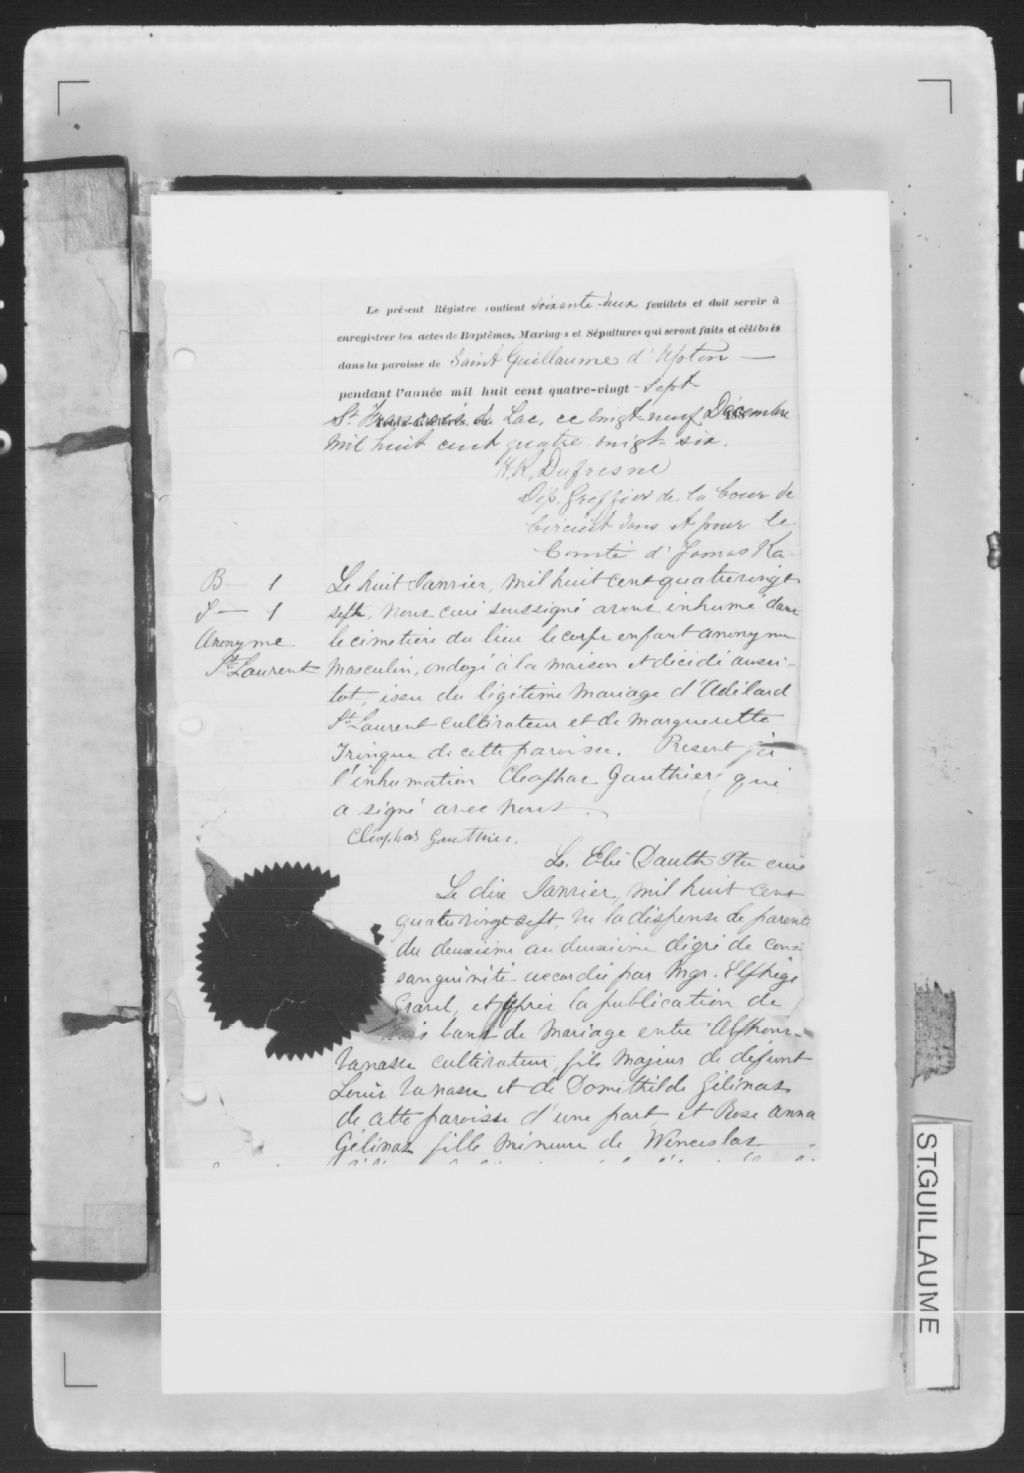 Le présent Régistre contient soixante-deux feuillets et doit servir à
enregistrer les actes de Baptêmes, Mariages et Sépultures qui seront faits et célébrés
dans la paroisse de Saint Guillaume d'Upton —
pendant l'année mil huit cent quatre-vingt-sept
St François du Lac, ce vingt-neuf Décembre 188
mil huit cent quatre vingt six.
H. R. Dufresne
Dép. Greffier de la Cour de
Circuit dans et pour le
Comté d'Yamaska
B — 1
S — 1
Anonyme
St Laurent
Le huit Janvier, mil huit cent quatre vingt
sept, nous curé soussigné avons inhumé dans
le cimetière du lieu le corps enfant anonyme
masculin, ondoyé à la maison et décédé aussi-
tot, issu du légitime mariage d'Adélard
St Laurent cultivateur et de Margueritte
Fringue de cette paroisse. Présent à
l'inhumation Cléophas Gauthier, qui
a signé avec nous.
Cléophas Gauthier.
L. Elie Dauth Ptre curé
Le dix Janvier, mil huit cent
quatre vingt sept, vu la dispense de parenté
du deuxième au deuxième dégré de con-
sanguinité accordée par Mgr. Elphège
Gravel, et après la publication de
trois bans de mariage entre Alphonse
Vanasse cultivateur, fils majeur de défunt
Louis Vanasse et de Domithilde Gélinas
de cette paroisse d'une part, et Rose Anna
Gélinas fille mineure de Winceslas
ST.GUILLAUME